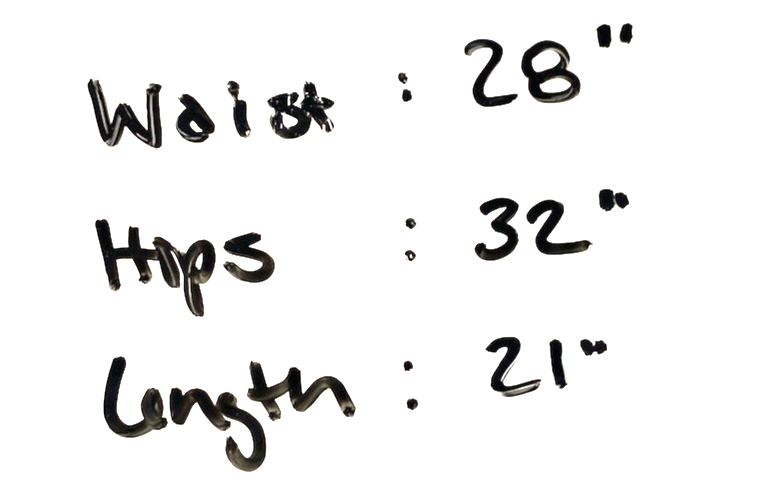 Waist : 28"
Hips : 32"
Length : 21"